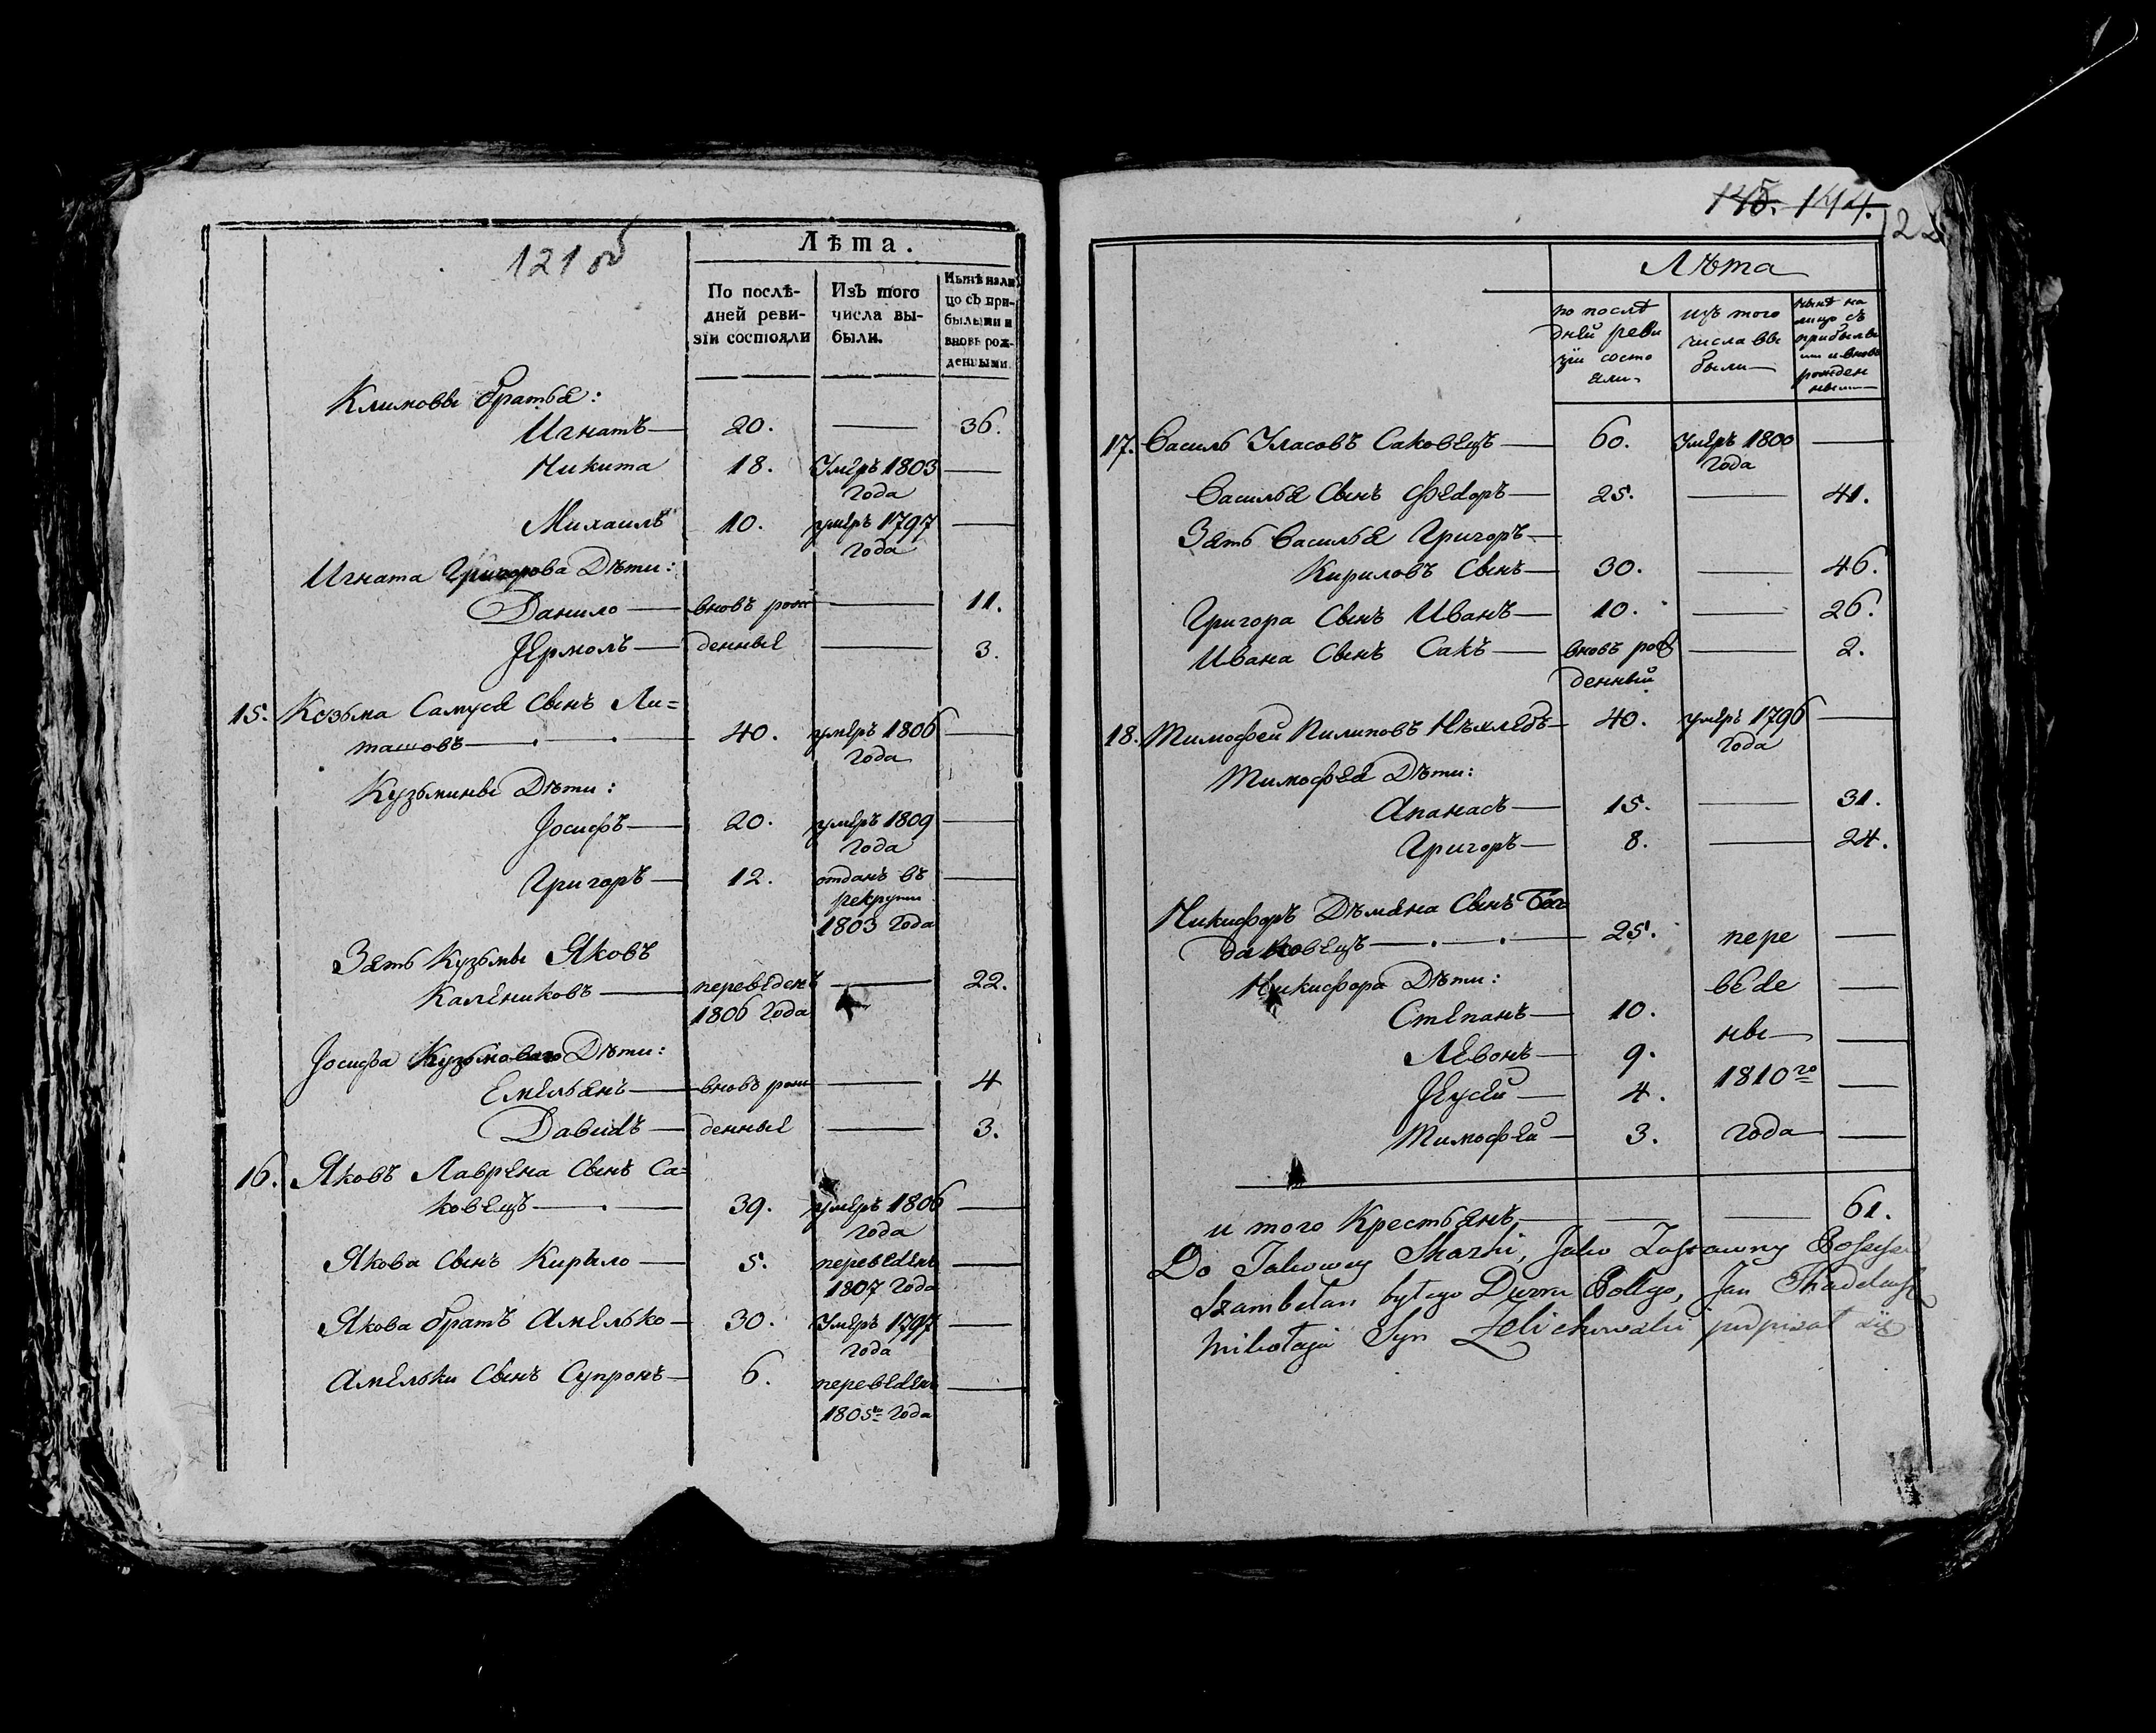 121 об
Лѣта.
По послѣ-
дней реви-
зіи состояли
Изъ того
числа вы-
были.
Нынѣ нали
цо съ при-
былыми и
вновь рож-
денными.
Климовы братья:
Игнатъ — 20. — 36.
Никита 18. Умеръ 1803 —
года
Михаилъ 10. умеръ 1797 —
года
Игната Григорова Дѣти:
Данило — вновь рож — 11.
Ермолъ — денные — 3.
15. Козьма Самуся Сынъ Ли=
ташовъ — 40. умеръ 1806 —
года
Кузьмины Дѣти:
Іосифъ — 20. умеръ 1809 —
года
Григоръ — 12. отданъ въ —
рекруты
1803 года
Зять Кузьмы Яковъ
Калениковъ — переведенъ — 22.
1806 года
Іосифа Дѣти:
Емельянъ — вновь рож — 4
Давидъ — денные — 3.
16. Яковъ Лаврена Сынъ Са=
ковецъ — 39. умеръ 1806 —
года
Якова Сынъ Кирыло — 5. переведенъ —
1807 года
Якова братъ Амелько — 30. Умеръ 1797 —
года
Амельки Сынъ Супронъ — 6. переведенъ —
1805го года
145. 144. 122
Лѣта
по послѣ
дней реви
зіи состо
яли
изъ того
числа вы
были
нынѣ на
лицо съ
прибылы
ми и вновь
рожден
ными
17. Василь Уласовъ Саковецъ — 60. Умеръ 1800 —
года
Василья Сынъ Федоръ — 25. — 41.
Зять Василья Григоръ —
Кириловъ Сынъ — 30. — 46.
Григора Сынъ Иванъ — 10. — 26.
Ивана Сынъ Сакъ — вновь рож — 2.
денный
18. Тимофей Пилиповъ Нѣхлебъ — 40. умеръ 1796 —
года
Тимофея Дѣти:
Апанасъ — 15. — 31.
Григоръ — 8. — 24.
Никифоръ Дѣмяна Сынъ
25. пере —
Никифора Дѣти: веде —
Степанъ — 10.
ны —
Левонъ — 9.
Евсей — 4. 1810го —
Тимофей — 3. года —
и того Крестьянъ — 61.
Do Takowey Skazki, Jako
Szambelan byłego Dworu Polgo, Jan Thadeusz
Mikołaja Syn Zelichowski podpisał się